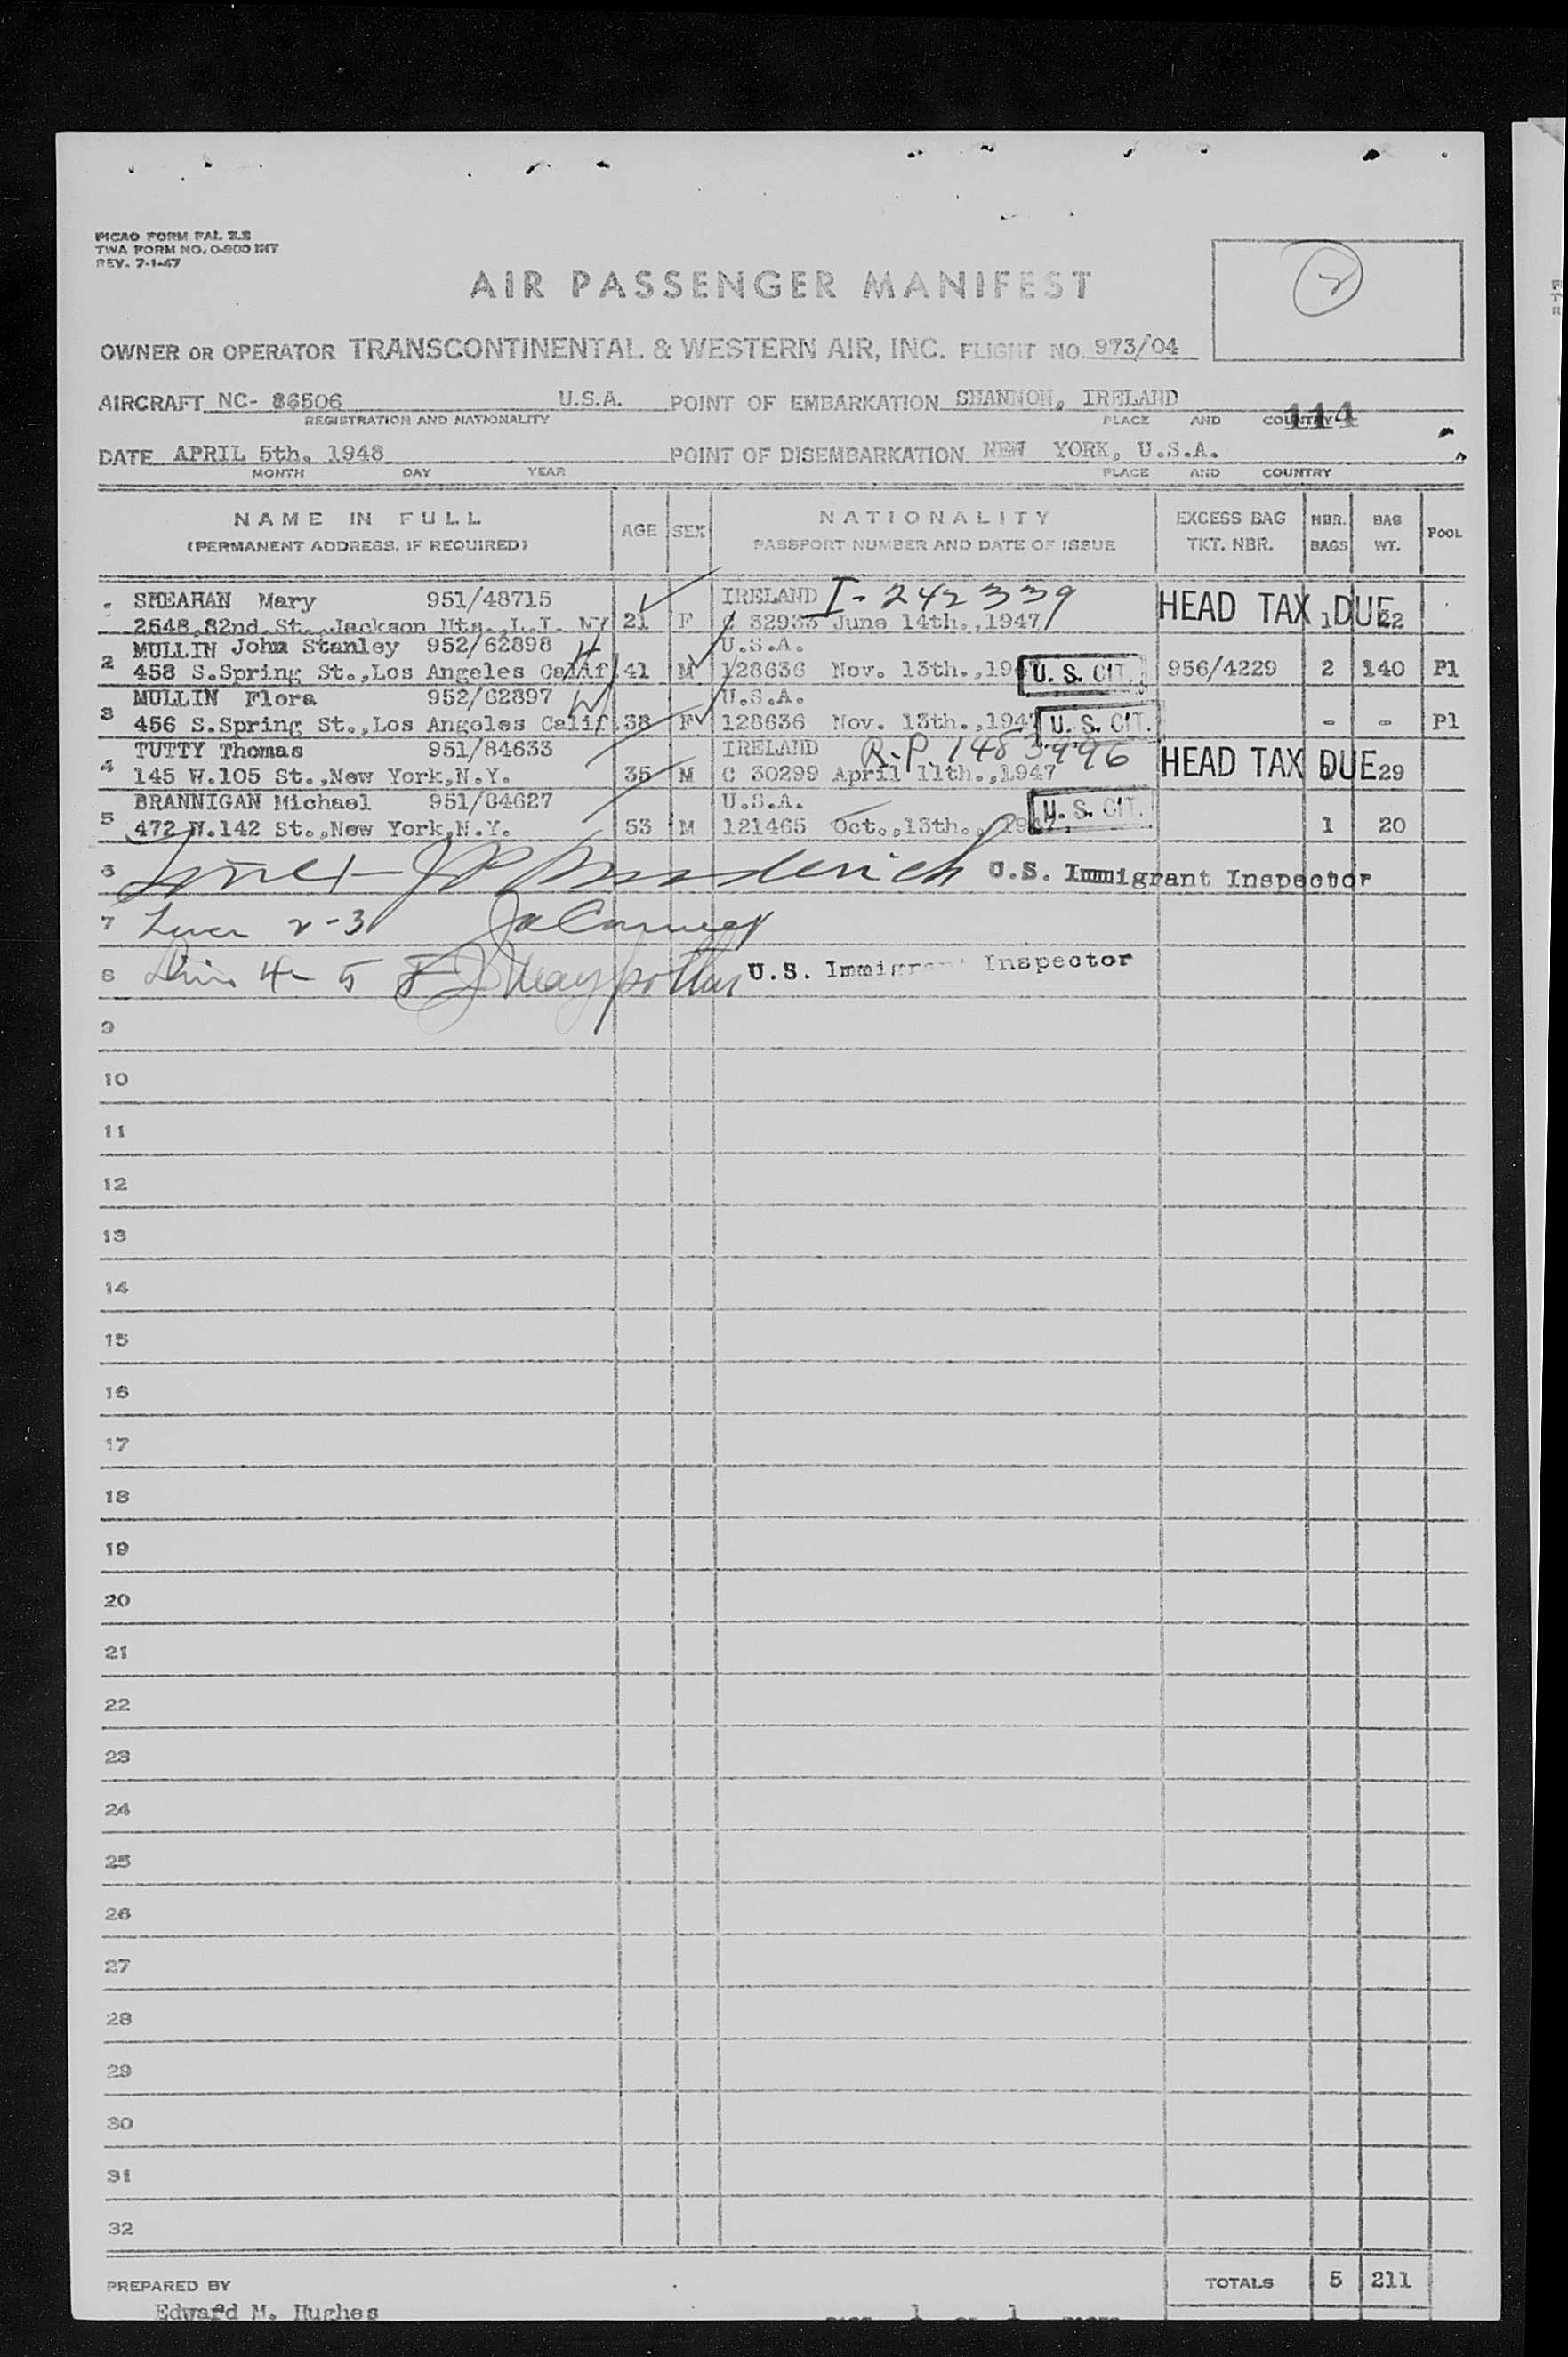 PICAO FORM FAL 2.2
TWA FORM NO. O-800 INT
REV. 7-1-47
2
AIR PASSENGER MANIFEST
OWNER OR OPERATOR TRANSCONTINENTAL & WESTERN AIR, INC. FLIGHT NO. 973/04
AIRCRAFT NC- 86506 U.S.A. POINT OF EMBARKATION SHANNON, IRELAND
REGISTRATION AND NATIONALITY PLACE AND COUNTRY 114
DATE APRIL 5th. 1948 POINT OF DISEMBARKATION NEW YORK, U.S.A.
MONTH DAY YEAR PLACE AND COUNTRY
NAME IN FULL AGE SEX NATIONALITY EXCESS BAG NBR. BAG POOL
(PERMANENT ADDRESS, IF REQUIRED) PASSPORT NUMBER AND DATE OF ISSUE TKT. NBR. BAGS WT.
SHEAHAN Mary 951/48715 IRELAND I-242339 HEAD TAX DUE
2548,82nd.St.,Jackson Hts.,L.I. NY 21 F C 32933 June 14th.,1947 1 22
MULLIN John Stanley 952/62898 U.S.A.
2 458 S.Spring St.,Los Angeles Calif 41 M 128636 Nov. 13th., U. S. CIT. 956/4229 2 140 P1
MULLIN Flora 952/62897 U.S.A.
3 456 S.Spring St.,Los Angeles Calif. 38 F 128636 Nov. 13th.,1947 U. S. CIT. - - P1
TUTTY Thomas 951/84633 IRELAND R.P. 1483996
4 145 W.105 St.,New York,N.Y. 35 M C 30299 April 11th.,1947 HEAD TAX DUE 29
BRANNIGAN Michael 951/84627 U.S.A.
5 472 W.142 St.,New York,N.Y. 53 M 121465 Oct.,13th., 1947. U. S. CIT. 1 20
6 U.S. Immigrant Inspector
7 2-3
8 4-5 U.S. Immigrant Inspector
9
10
11
12
13
14
15
16
17
18
19
20
21
22
23
24
25
26
27
28
29
30
31
32
PREPARED BY TOTALS 5 211
Edward M. Hughes 1 1